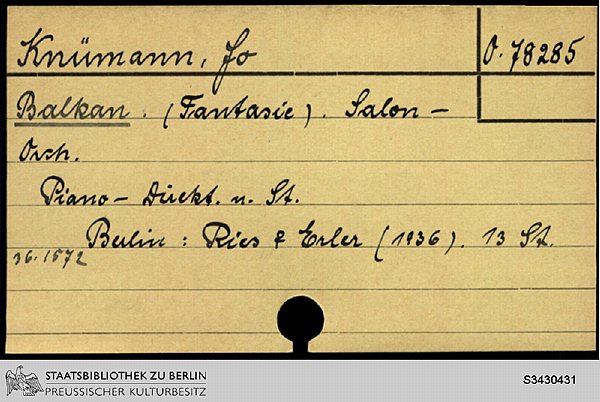 Knümann, Jo
O. 78285
Balkan. (Fantasie). Salon-
Orch.
Piano-Direkt. u. St.
Berlin: Ries & Erler (1936). 13 St.
36.1572
STAATSBIBLIOTHEK ZU BERLIN
PREUSSISCHER KULTURBESITZ
S3430431